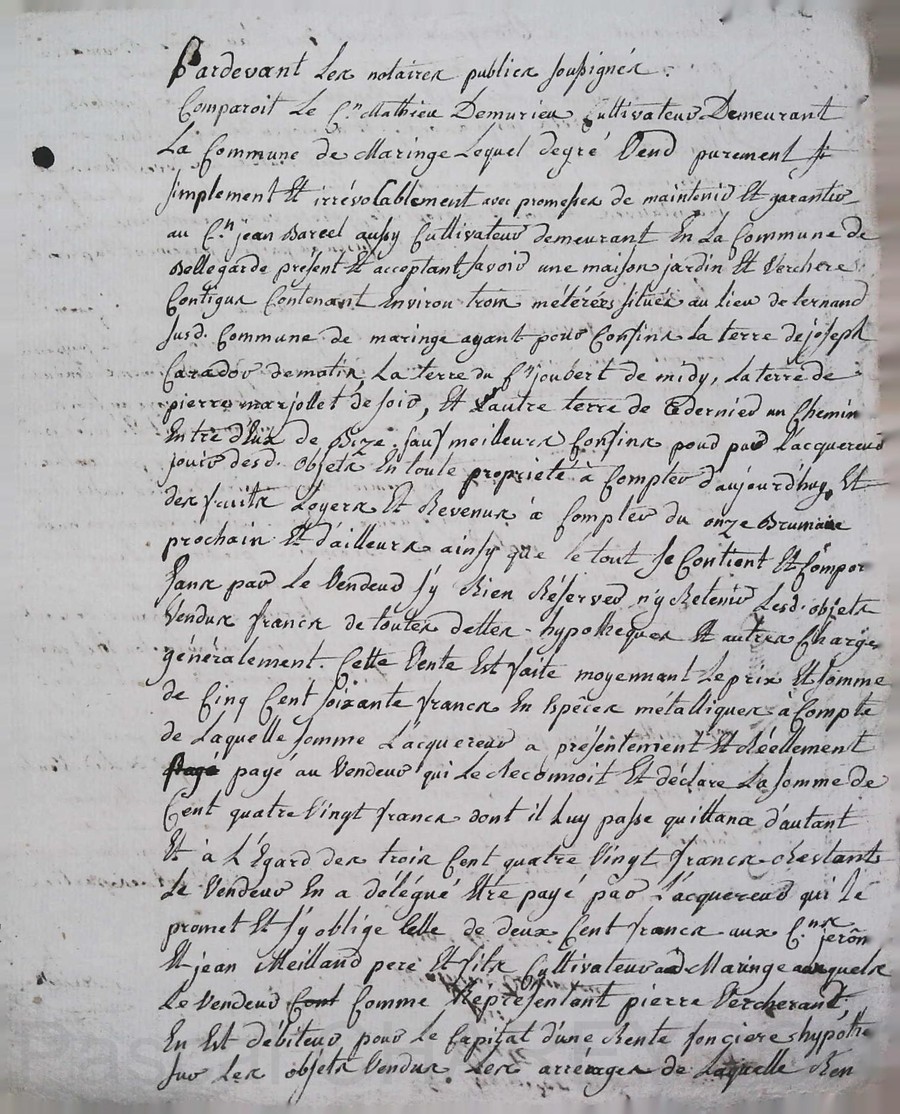 Pardevant Les notaires publics soussignés.
Comparoit Le C.en Mathieu Demurieu Cultivateur Demeurant
La Commune de Maringe Lequel degré Vend purement &
simplement Et irrévolablement avec promesses de maintenir Et garantir
au C.en jean Barcel aussy Cultivateur demeurant En La Commune de
Bellegarde présent Et acceptant savoir une maison jardin Et Verchere
Contigus Contenant Environ trois métérées situés au lieu de
susd. Commune de maringe ayant pour Confins La terre de joseph
de matin, La terre du C.en joubert de midy, La terre de
pierre marjollet de soir, Et L'autre terre de Cedernier un Chemin
Entre d'Eux de Bize. sauf meilleurs Confins pour par L'acquereur
jouir desd. objets En toute propriété à Compter d'aujourd'huy, Et
des fruits Loyers Et Revenus à Compter du onze Brumaire
prochain Et d'ailleurs ainsy que le tout se Contient Et Compor
sans par Le Vendeur s'y Rien Réserver n'y Retenir Lesd. objets
Vendus francs de toutes dettes - hypotheques Et autres Charges
généralement. Cette Vente Est faite moyennant Le prix Et somme
de Cinq Cent soixante francs En Espèces métalliques à Compte
de Laquelle somme L'acquereur a présentement Et Réellement
payé au Vendeur qui Le Reconnoit Et déclare La somme de
Cent quatre Vingt francs dont il Luy passe quittance d'autant
Et à L'Egard des trois Cent quatre Vingt francs Restants
Le Vendeur En a délégué Etre payé par L'acquereur qui Le
promet Et s'y oblige Celle de deux Cent francs aux C.ens jerôm
Et jean Meilland pere Et fils Cultivateurs à Maringe auxquels
Le Vendeur Comme Représentant pierre Vercherand,
En Est débiteur pour Le Capital d'une Rente fonciere hypothe
sur Les objets Vendus Les arrérages de Laquelle Ren